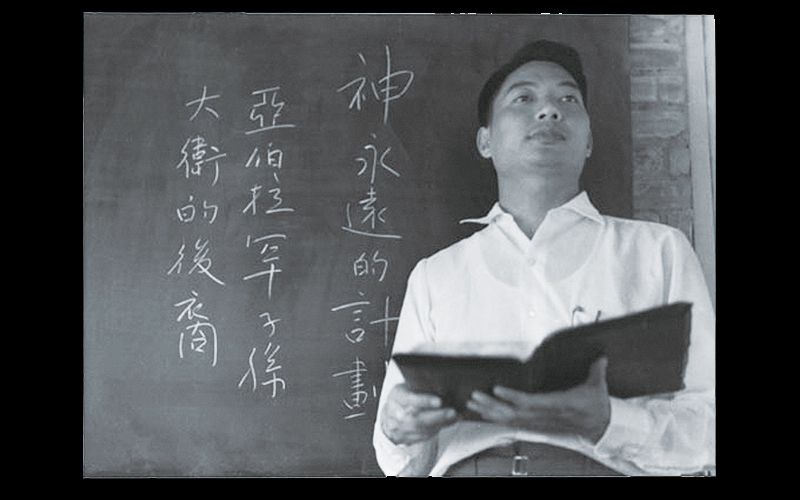 神永遠的計劃
亞伯拉罕子孫
大衛的後裔